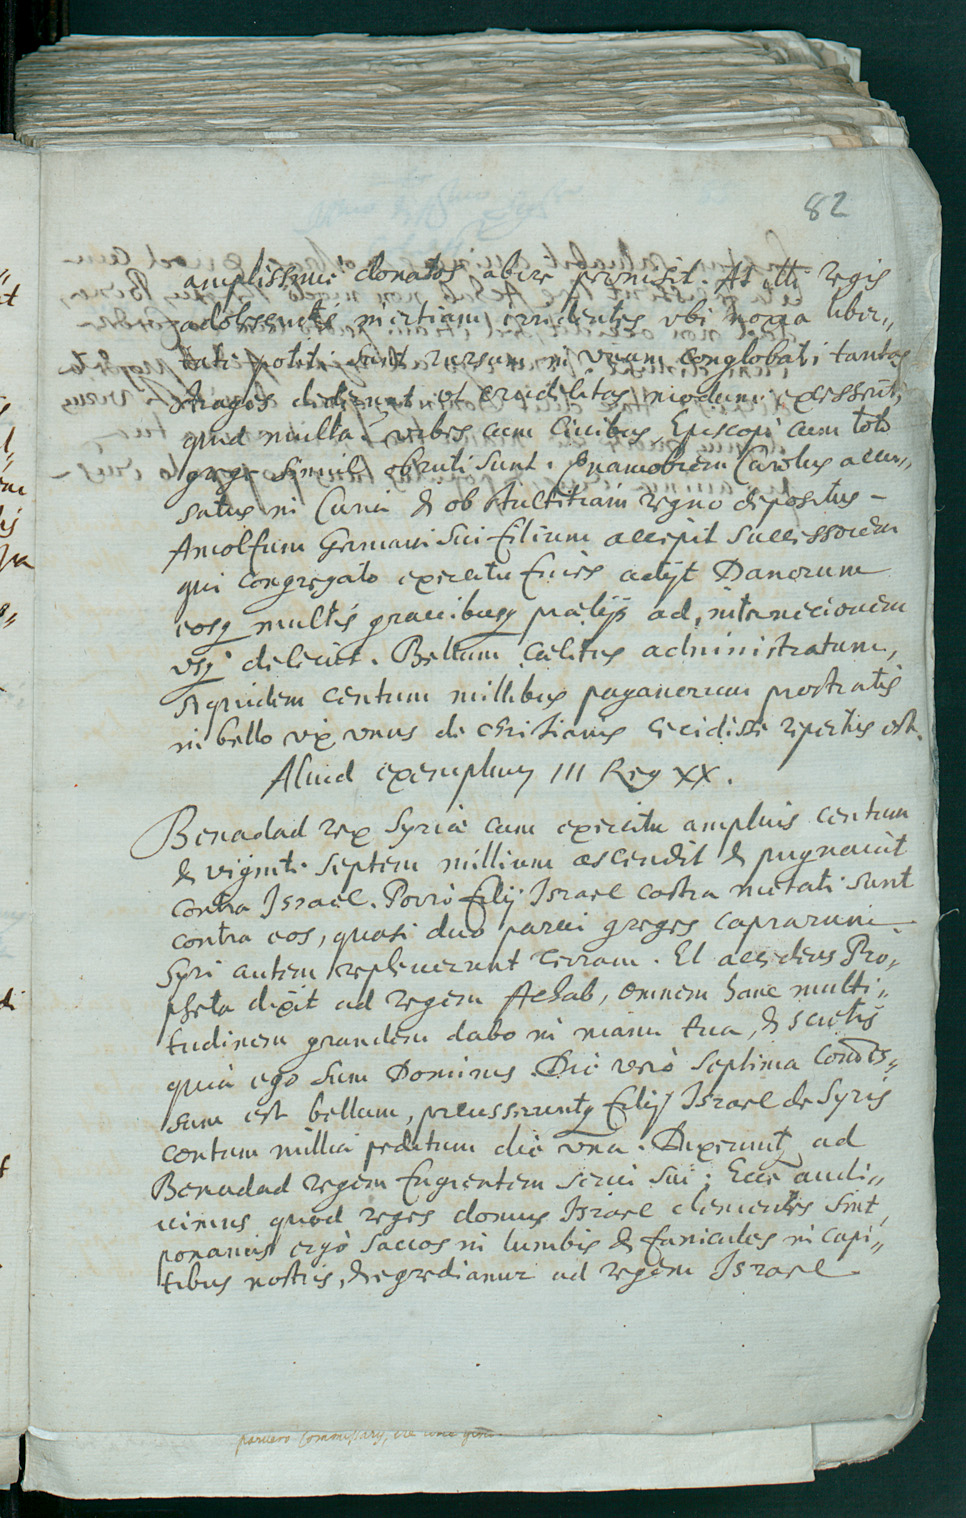 82
amplissime donatos abire promisit. At illi regis
adolescentis inertiam irridentes vbi noua liber„
tate potiti sunt rursum in vnum conglobati tantas
strages dederunt vt crudelitas modum excesserit,
quod multa vrbes cum Ciuibus Episcopi cum toto
grege simul obruti sunt. Quamobrem Carolus accu„
satus in Curia & ob stultitiam regno depositus –
Arnolfum Germani sui filium accepit successorem
qui congregato exercitu fines adijt Danorum
eosq multis grauibusq praelijs ad internecionem
vsq deleuit. Bellum caelitus administratum,
siquidem centum millibus paganorum prostratis
in bello vix vnus de christianis cecidisse repertus est.
Aliud exemplum III Reg XX.
Benadad rex Syriae cum exercitu amplius centum
& viginti septem millium ascendit & pugnauit
contra Israel. Porrò filij Israel castra metati sunt
contra eos, quasi duo parui greges caprarum.
Syri autem repleuerunt terram. Et accedens Pro„
pheta dixit ad regem Achab, omnem hanc multi„
tudinem grandem dabo in manu tua, & scietis
quia ego sum Dominus. Die verò septima Commis„
sum est bellum, percusseruntq filij Israel de Syris
centum millia peditum die vna. Dixerunt ad
Benadad regem fugientem serui sui; Ecce audi„
uimus quod reges domus Israel clementes sint,
ponamus ergò saccos in lumbis & funiculos in capi„
tibus nostris, & egrediamur ad regem Israel